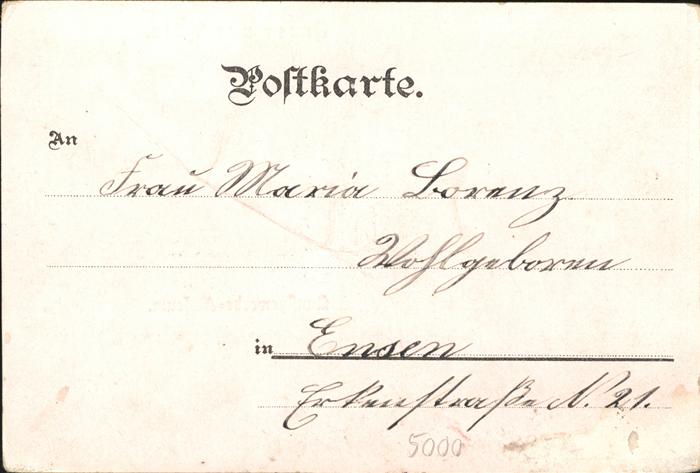 Postkarte.
An
Frau Maria Lorenz
Wohlgeboren
in Ensen
Erkenstraße N. 21.
5000